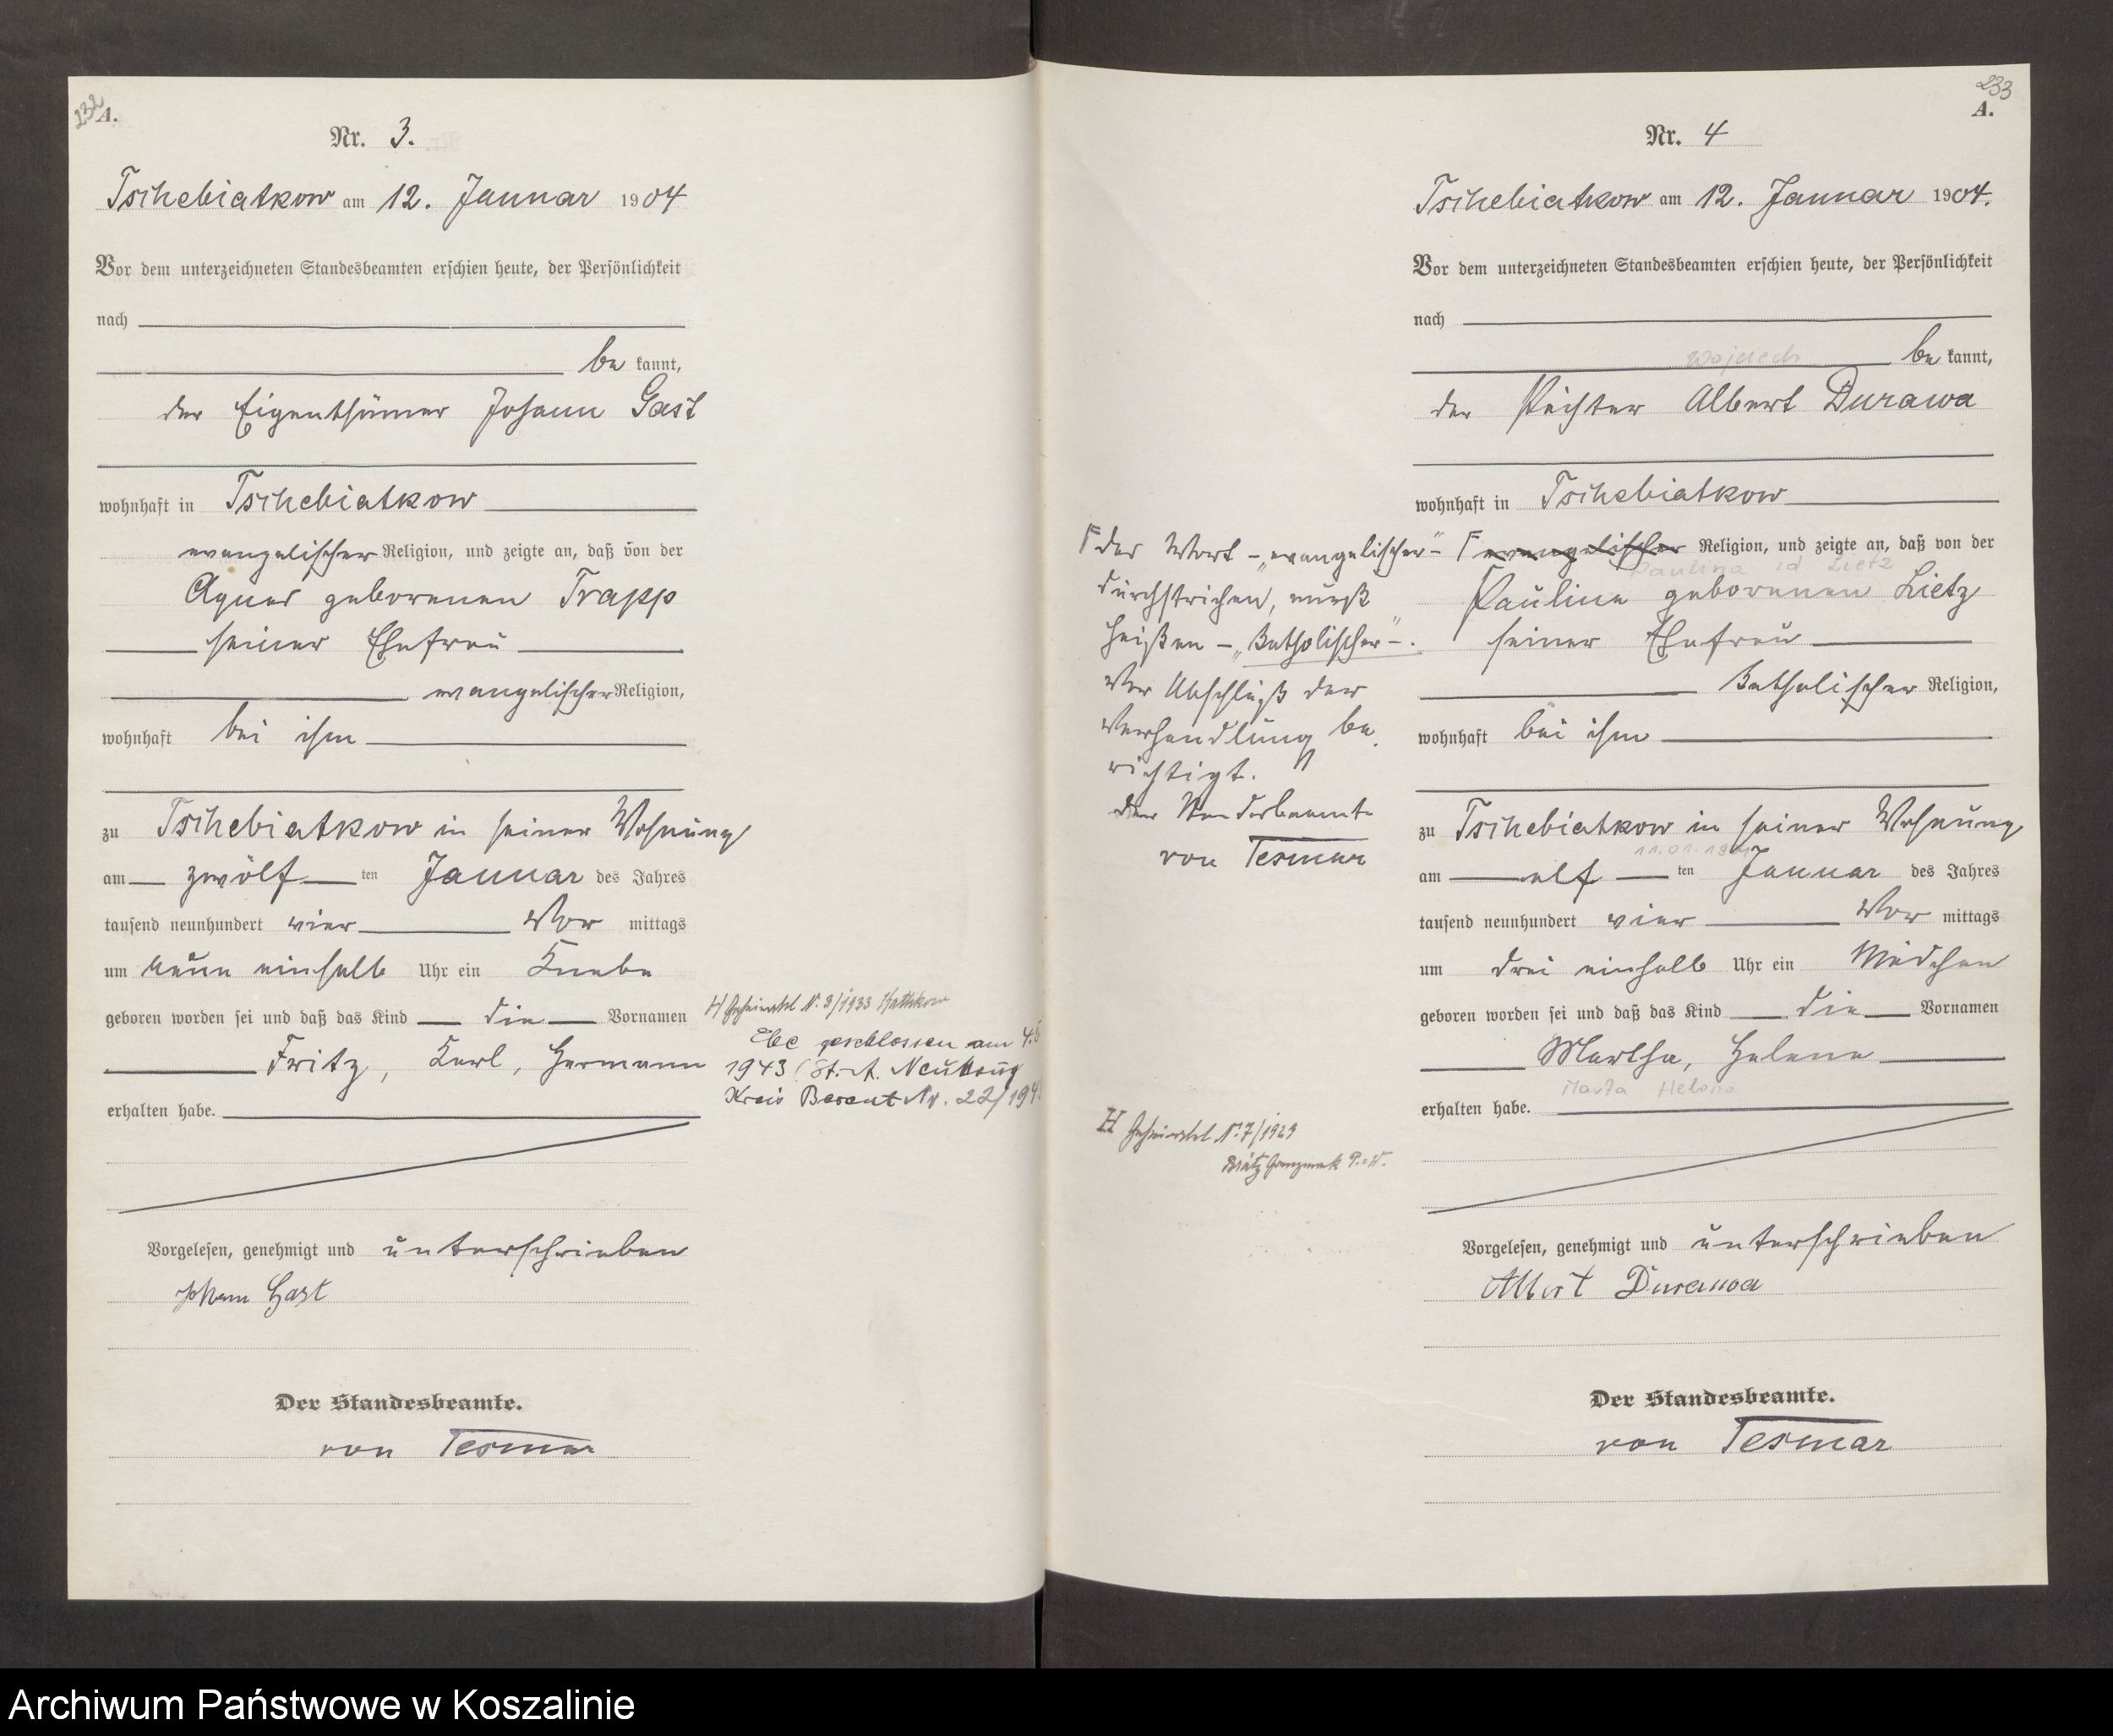 232
A.
Nr. 3.
Tschebiatkow am 12. Januar 1904
Vor dem unterzeichneten Standesbeamten erschien heute, der Persönlichkeit
nach
be kannt,
der Eigenthümer Johann Gast
wohnhaft in Tschebiatkow
evangelischer Religion, und zeigte an, daß von der
Agnes geborenen Trapp
seiner Ehefrau
evangelischer Religion,
wohnhaft bei ihm
zu Tschebiatkow in seiner Wohnung
am zwölf ten Januar des Jahres
tausend neunhundert vier Vor mittags
um neun einhalb Uhr ein Knabe
geboren worden sei und daß das Kind die Vornamen
Fritz, Karl, Hermann
erhalten habe.
H Geheiratet N. 3/1933
Ehe geschlossen am 4.
1943 (St. A. Neukrug
Kreis Berent Nr. 22/194
Vorgelesen, genehmigt und unterschrieben
Johann Gast
Der Standesbeamte.
von Tesmar
233
A.
Nr. 4
Tschebiatkow am 12. Januar 1904.
Vor dem unterzeichneten Standesbeamten erschien heute, der Persönlichkeit
nach
Wojciech
be kannt,
der Pächter Albert Durawa
wohnhaft in Tschebiatkow
evangelischer Religion, und zeigte an, daß von der
Paulina zd Lietz
Pauline geborenen Lietz
seiner Ehefrau
Katholischer Religion,
wohnhaft bei ihm
zu Tschebiatkow in seiner Wohnung
11.01.
am elf ten Januar des Jahres
tausend neunhundert vier Vor mittags
um drei einhalb Uhr ein Mädchen
geboren worden sei und daß das Kind die Vornamen
Martha, Helene
Marta Helena
erhalten habe.
der Wort - „evangelischer" -
durchstrichen, muß
heißen - „Katholischer" -.
Vor Abschluß der
Verhandlung be
richtigt.
Der Standesbeamte
von Tesmar
H Geheiratet N. 7/1929
Vorgelesen, genehmigt und unterschrieben
Albert Durawa
Der Standesbeamte.
von Tesmar
Archiwum Państwowe w Koszalinie